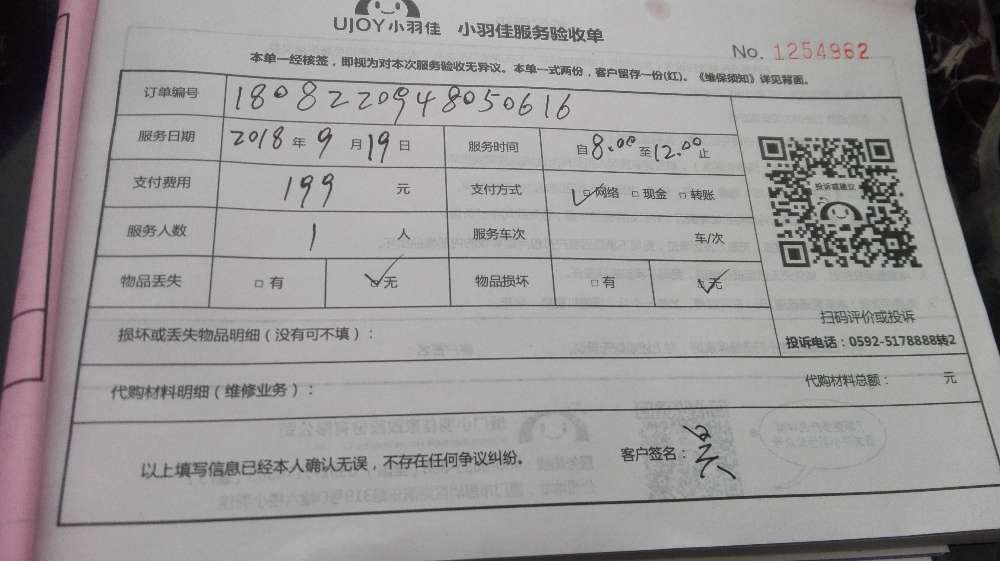 UJOY小羽佳 小羽佳服务验收单
No. 1254962
本单一经核签，即视为对本次服务验收无异议。本单一式两份，客户留存一份(红)。《维保须知》详见背面。
订单编号 1808220948050616
服务日期 2018年9月19日 服务时间 自8.00至12.00止
支付费用 199元 支付方式 ☑网络 □现金 □转账
服务人数 1人 服务车次 车/次
物品丢失 □有 ☑无 物品损坏 □有 ☑无
投诉或建议
扫码评价或投诉
投诉电话：0592-5178888转2
损坏或丢失物品明细（没有可不填）：
代购材料明细（维修业务）： 代购材料总额： 元
以上填写信息已经本人确认无误，不存在任何争议纠纷。 客户签名：